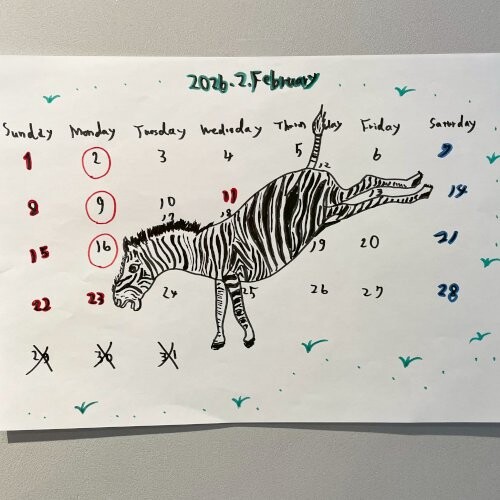 2026.2.February
Sunday Monday Tuesday Wednesday Thursday Friday Saturday
1 2 3 4 5 6 7
8 9 10 11 12 14
15 16 17 18 19 20 21
22 23 24 25 26 27 28
29 30 31